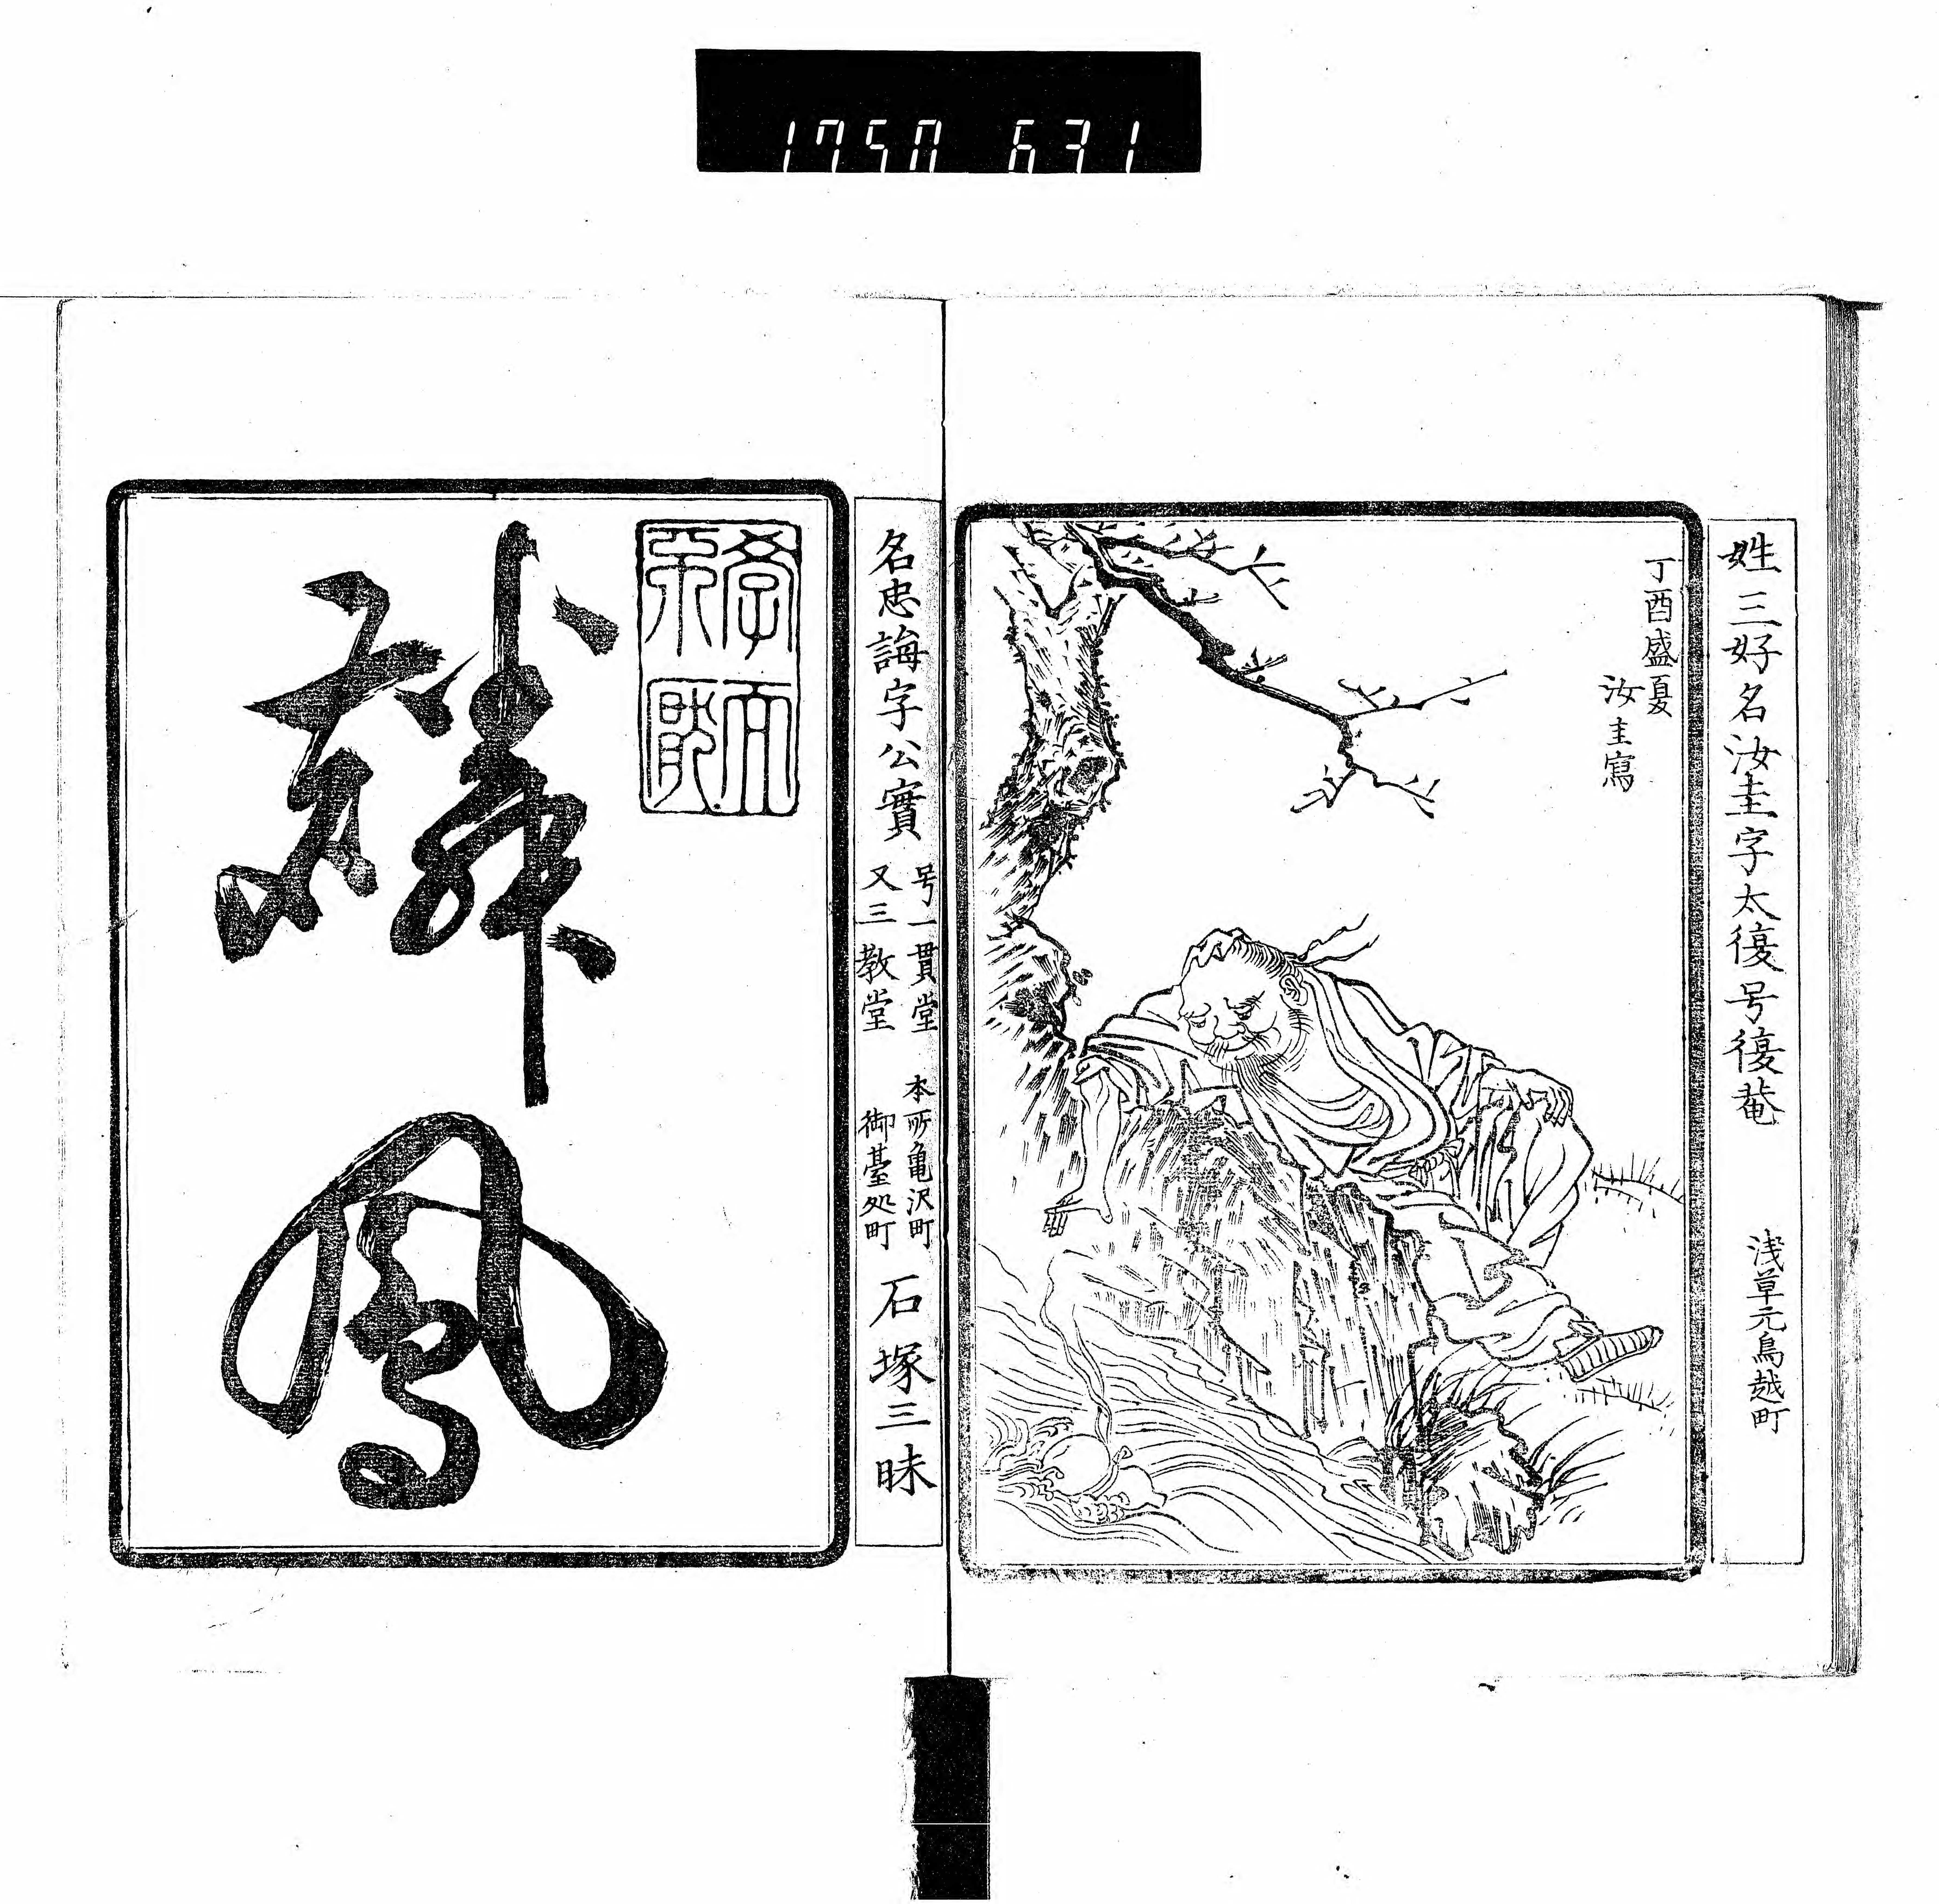 1750 631
姓三好名汝圭字太復号復菴
浅草元鳥越町
丁酉盛夏
汝圭寫
名忠誨字公實
号一貫堂
又三教堂
本所亀沢町
御臺処町
石塚三昧
麟
鳳